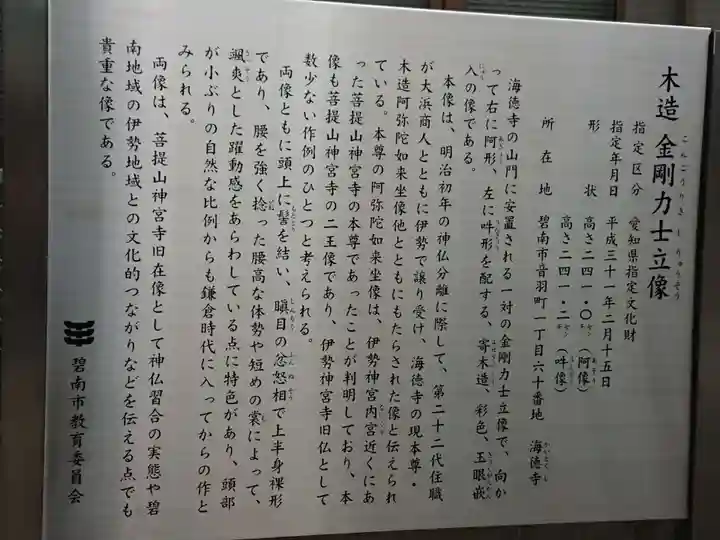 木造 金剛力士立像
こんごうりきしりゅうぞう
指定区分 愛知県指定文化財
指定年月日 平成三十一年二月十五日
形状 高さ二四一・〇㌢(阿像)
高さ二四一・二㌢(吽像)
所在地 碧南市音羽町一丁目六十番地 海徳寺
海徳寺の山門に安置される一対の金剛力士立像で、向か
って右に阿形、左に吽形を配する、寄木造、彩色、玉眼嵌
入の像である。
本像は、明治初年の神仏分離に際して、第二十二代住職
が大浜商人とともに伊勢で譲り受け、海徳寺の現本尊・
木造阿弥陀如来坐像他とともにもたらされた像と伝えられ
ている。本尊の阿弥陀如来坐像は、伊勢神宮内宮近くにあ
った菩提山神宮寺の本尊であったことが判明しており、本
像も菩提山神宮寺の二王像であり、伊勢神宮寺旧仏として
数少ない作例のひとつと考えられる。
両像ともに頭上に髻を結い、瞋目の忿怒相で上半身裸形
であり、腰を強く捻った腰高な体勢や短めの裳によって、
颯爽とした躍動感をあらわしている点に特色があり、頭部
が小ぶりの自然な比例からも鎌倉時代に入ってからの作と
みられる。
両像は、菩提山神宮寺旧在像として神仏習合の実態や碧
南地域の伊勢地域との文化的つながりなどを伝える点でも
貴重な像である。
碧南市教育委員会